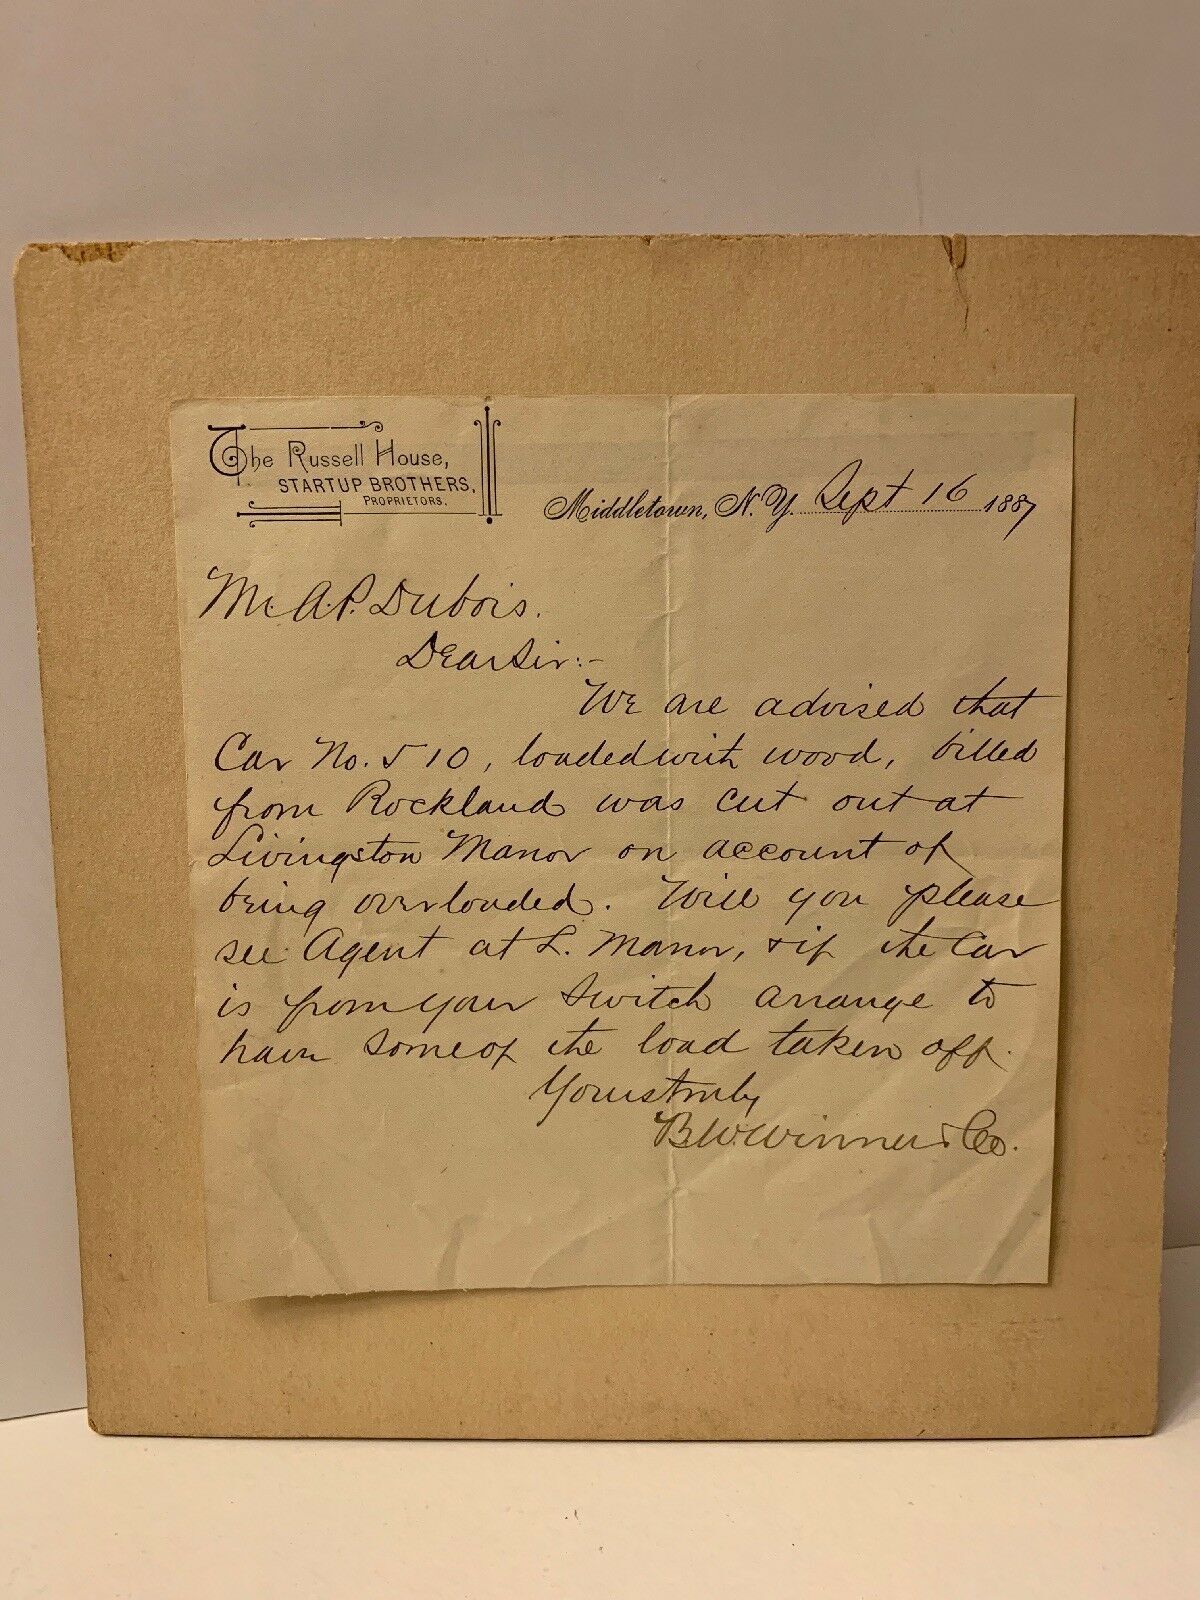 The Russell House,
STARTUP BROTHERS,
PROPRIETORS.
Middletown, N.Y. Sept 16 1887
Mr. A.P. Dubois.
Dear Sir:-
We are advised that
Car No. 510, loaded with wood, billed
from Rockland was cut out at
Livingston Manor on account of
being overloaded. Will you please
see Agent at L. Manor, & if the Car
is from your switch arrange to
have some of the load taken off.
Yours truly
B.W. Winner & Co.